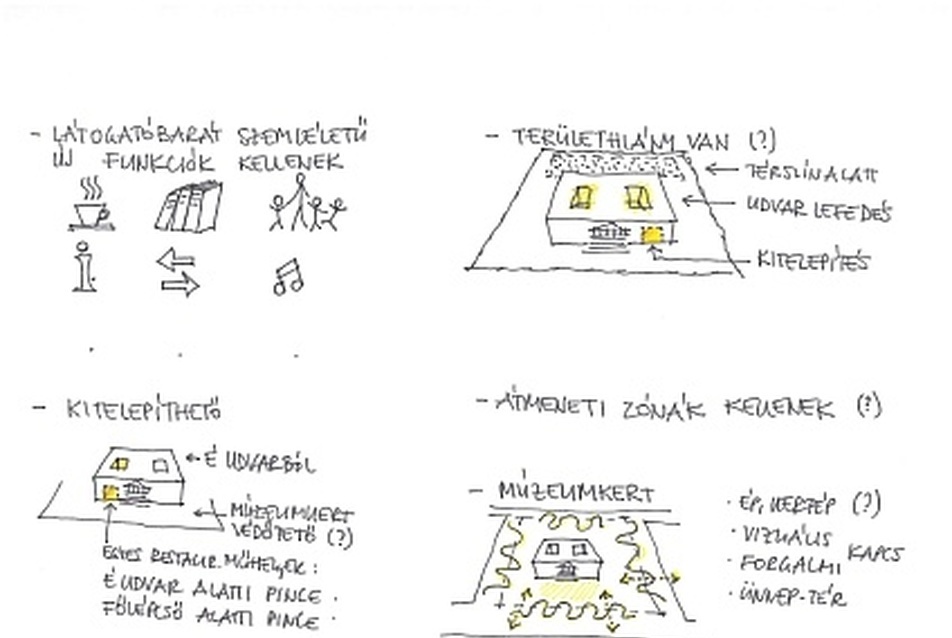 - LÁTOGATÓBARÁT SZEMLÉLETŰ
ÚJ FUNKCIÓK KELLENEK
- TERÜLETHIÁNY VAN (?)
TÉRSZÍN ALATT
UDVAR LEFEDÉS
KITELEPÍTÉS
- KITELEPÍTHETŐ
É UDVARBÓL
MÚZEUMKERT
VÉDŐTETŐ (?)
EGYES RESTAUR. MŰHELYEK:
É UDVAR ALATTI PINCE .
FŐLÉPCSŐ ALATTI PINCE .
- ÁTMENETI ZÓNÁK KELLENEK (?)
- MÚZEUMKERT
· ÉP, KERTÉP (?)
· VIZUÁLIS
· FORGALMI KAPCS
· ÜNNEP-TÉR